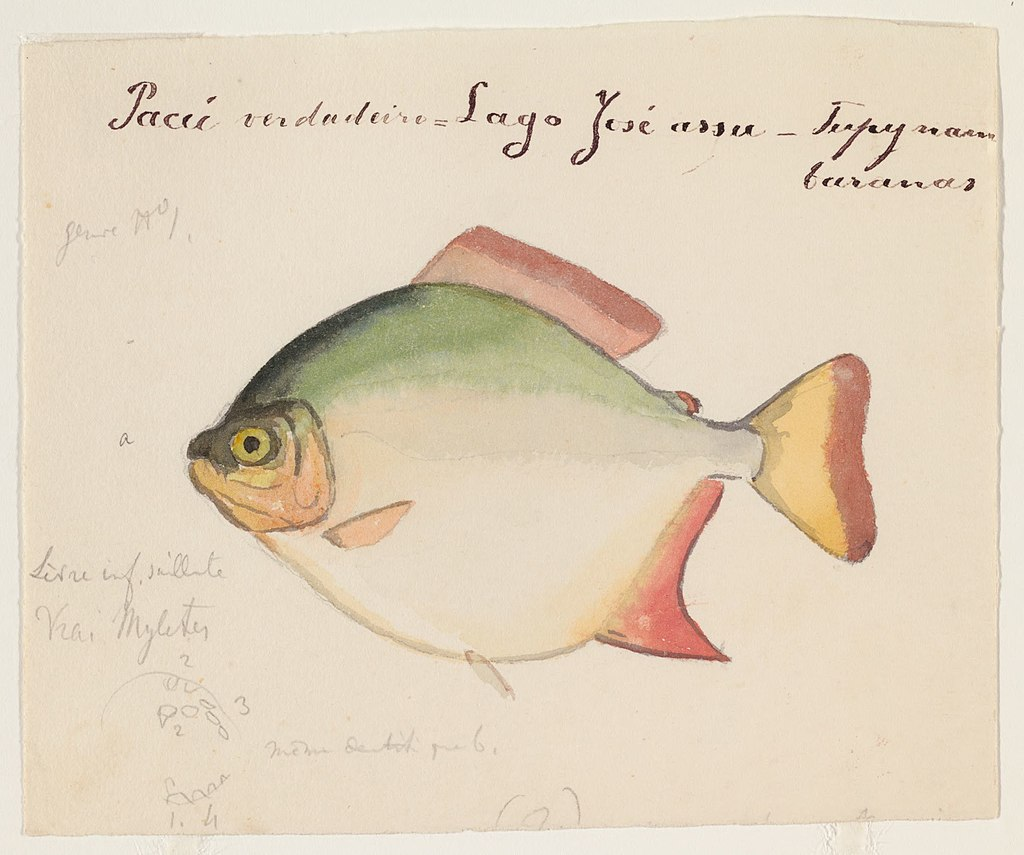 Pacú verdadeiro = Lago José assu – Tupynam
baranas
genre No 1.
a
Lèvre inf. saillante
Vrai Myletes
2
3
2
même que b.
1. 4